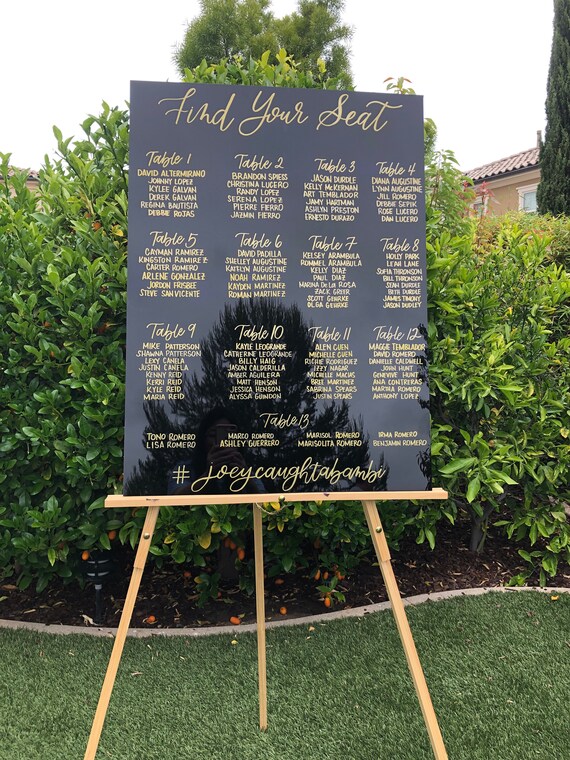 Find Your Seat
Table 1
DAVID ALTERMIRANO
JOHNNY LOPEZ
KYLEE GALVAN
DEREK GALVAN
REGINA BAUTISTA
DEBBIE ROJAS
Table 2
BRANDON SPIESS
CHRISTINA LUCERO
RANDY LOPEZ
SERENA LOPEZ
PIERRE FIERRO
JAZMIN FIERRO
Table 3
JASON DURDLE
KELLY MCKERNAN
ART TEMBLADOR
JAMY HARTMAN
ASHLYN PRESTON
ERNESTO DURAZO
Table 4
DIANA AUGUSTINE
LYNN AUGUSTINE
JILL ROMERO
DEBBIE SEPIK
ROSE LUCERO
DAN LUCERO
Table 5
CAYMAN RAMIREZ
KINGSTON RAMIREZ
CARTER ROMERO
ARLENE GONZALEZ
JORDON FRISBEE
STEVE SAN VICENTE
Table 6
DAVID PADILLA
SHELLEY AUGUSTINE
KAITLYN AUGUSTINE
NOAH RAMIREZ
KAYDEN MARTINEZ
ROMAN MARTINEZ
Table 7
KELSEY ARAMBULA
ROMMEL ARAMBULA
KELLY DIAZ
PAUL DIAZ
MARINA DE LA ROSA
ZACK GREER
SCOTT GEHRKE
OLGA GEHRKE
Table 8
HOLLY PARK
LEAN LANE
SOFIA THRONSON
BILL THRONSON
STAN DURDLE
BETH DURDLE
JAMES TIMONY
JASON DUDLEY
Table 9
MIKE PATTERSON
SHAWNA PATTERSON
LEXY CANELA
JUSTIN CANELA
KENNY REID
KERRI REID
KYLE REID
MARIA REID
Table 10
KAYLE LEOGRANDE
CATHERINE LEOGRANDE
BILLY HAIG
JASON CALDERILLA
AMBER AGUILERA
MATT HENSON
JESSICA HENSON
ALYSSA GUINDON
Table 11
ALEN CUEN
MICHELLE CUEN
RICHIE RODRIGUEZ
IZZY NAGAR
MICHELLE MACIAS
BRIT MARTINEZ
SABRINA SPEARS
JUSTIN SPEARS
Table 12
MAGGIE TEMBLADOR
DAVID ROMERO
DANIELLE CALDWELL
JOHN HUNT
GENEVIVE HUNT
ANA CONTRERAS
MARTHA ROMERO
ANTHONY LOPEZ
Table 13
TONO ROMERO
LISA ROMERO
MARCO ROMERO
ASHLEY GUERRERO
MARISOL ROMERO
MARISOLITA ROMERO
IRMA ROMERO
BENJAMIN ROMERO
# joeycaughtabambi